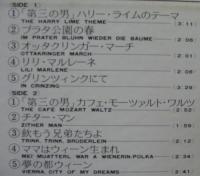 SIDE 1
① 「第三の男」ハリー・ライムのテーマ
THE HARRY LIME THEME 3:11
② プラタ公園の春
IM PRATER BLÜHN WIEDER DIE BÄUME 2:06
③ オッタクリンガー・マーチ
OTTAKRINGER MARCH 2:01
④ リリ・マルレーネ
LILI MARLENE 2:06
⑤ グリンツィングにて
IN GRINZING 3:29
SIDE 2
① 「第三の男」カフェ・モーツァルト・ワルツ
THE CAFE MOZART WALTZ 2:32
② チター・マン
ZITHER MAN 1:59
③ 飲もう兄弟たちよ
TRINK, TRINK, BRÜDERLEIN 2:12
④ ママはウィーン生まれ
MEI MUATTERL WAR A WIENERIN-POLKA 2:34
⑤ 夢の都ウィーン
VIENNA CITY OF MY DREAMS 2:41